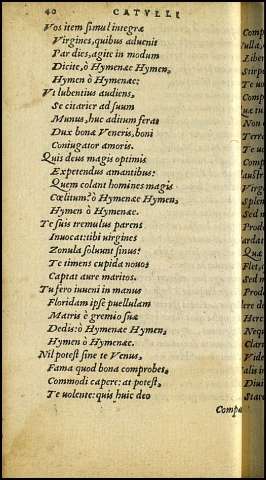 40 CATVLLI
Vos item simul integræ
Virgines, quibus aduenit
Par dies, agite in modum
Dicite, ò Hymenæe Hymen,
Hymen ò Hymenæe:
Vt lubentius audiens,
Se citarier ad suum
Munus, huc aditum ferat
Dux bonæ Veneris, boni
Coniugator amoris.
Quis deus magis optimis
Expetendus amantibus?
Quem colant homines magis
Cœlitum? ò Hymenæe Hymen,
Hymen ò Hymenæe.
Te suis tremulus parens
Inuocat: tibi virgines
Zonula soluunt sinus:
Te timens cupida nouos
Captat aure maritos.
Tu fero iuueni in manus
Floridam ipse puellulam
Matris è gremio suæ
Dedis: ò Hymenæe Hymen,
Hymen ò Hymenæe.
Nil potest sine te Venus,
Fama quod bona comprobet,
Commodi capere: at potest,
Te volente: quis huic deo
Compa